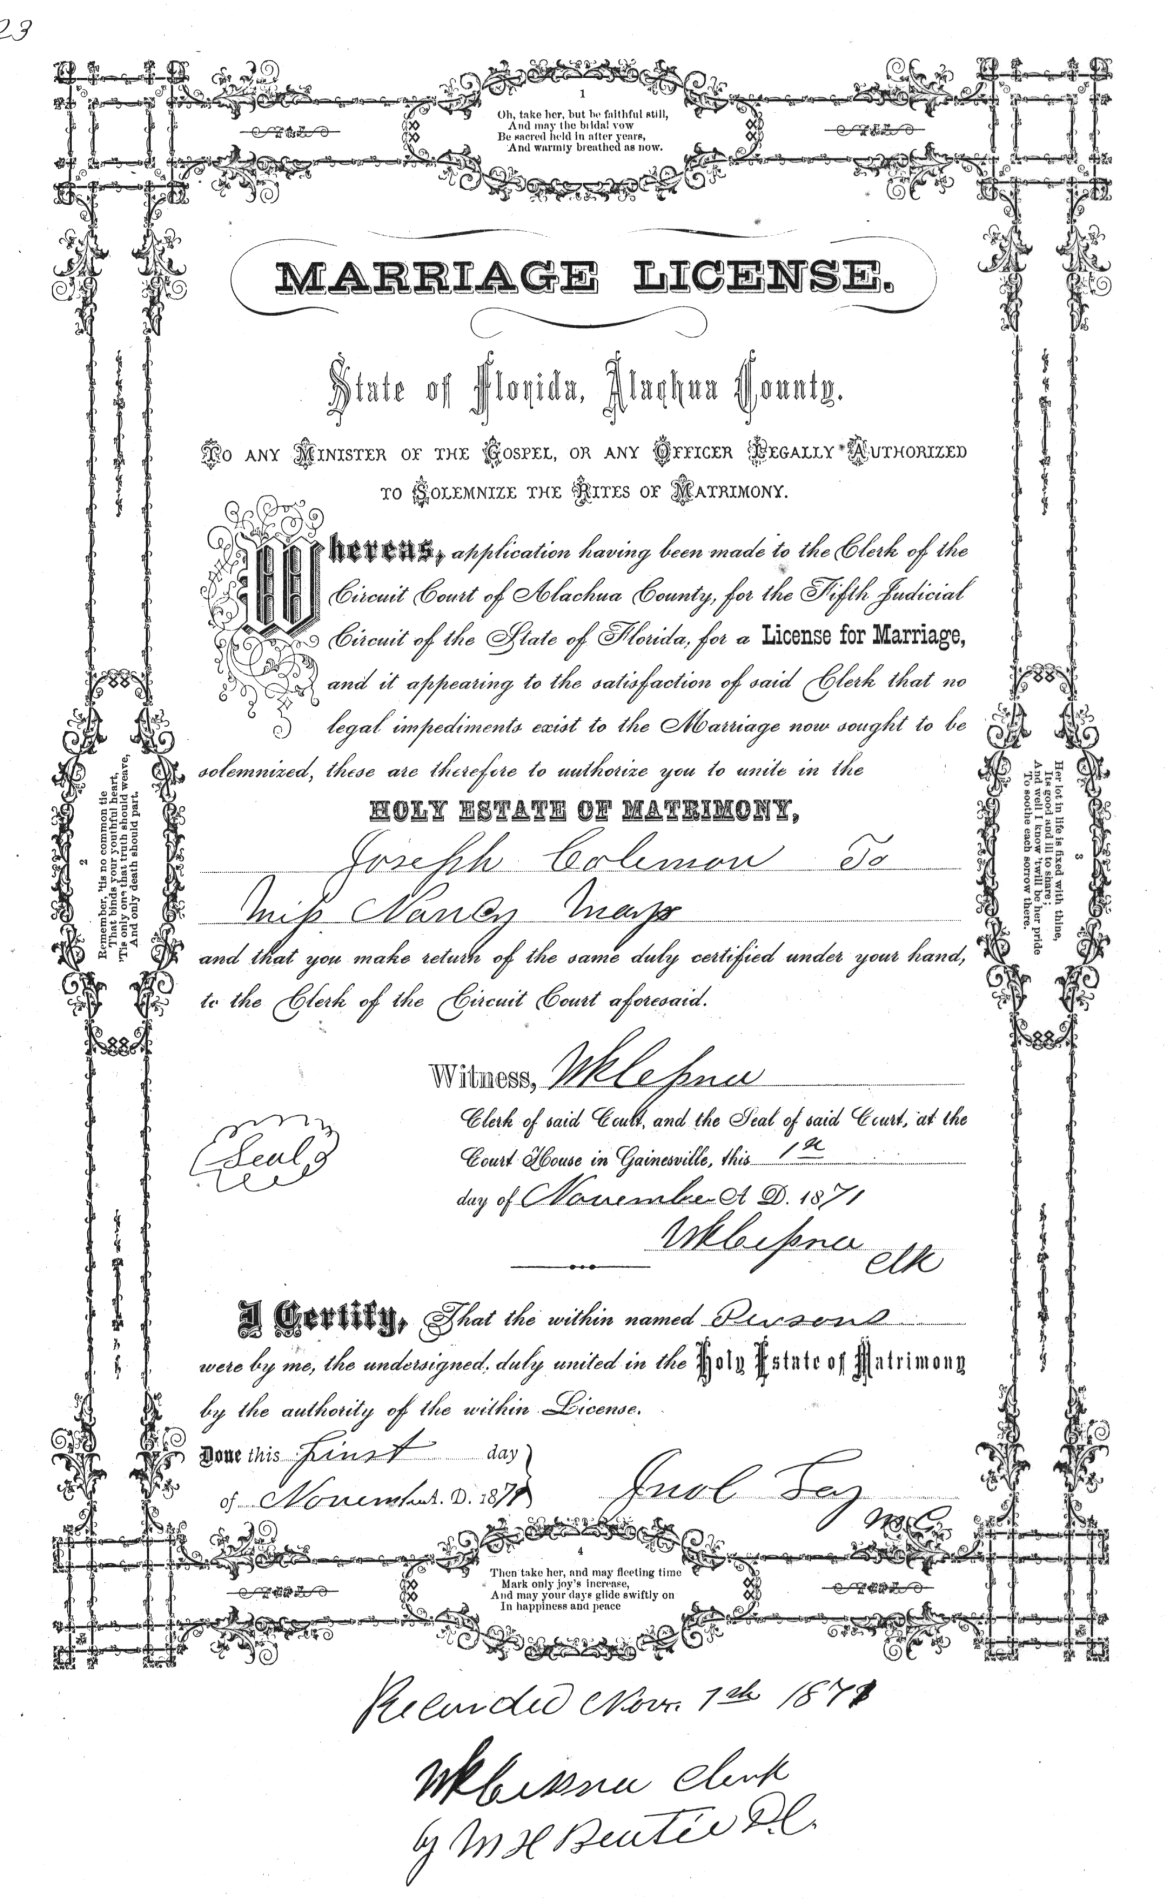 23
1
Oh, take her, but be faithful still,
And may the bridal vow
Be sacred held in after years,
And warmly breathed as now.
MARRIAGE LICENSE.
State of Florida, Alachua County.
TO ANY MINISTER OF THE GOSPEL, OR ANY OFFICER LEGALLY AUTHORIZED
TO SOLEMNIZE THE RITES OF MATRIMONY.
Whereas, application having been made to the Clerk of the
Circuit Court of Alachua County, for the Fifth Judicial
Circuit of the State of Florida, for a License for Marriage,
and it appearing to the satisfaction of said Clerk that no
legal impediments exist to the Marriage now sought to be
solemnized, these are therefore to authorize you to unite in the
HOLY ESTATE OF MATRIMONY,
Joseph Colemon To
Miss Nancy Mays
and that you make return of the same duly certified under your hand,
to the Clerk of the Circuit Court aforesaid.
2
Remember, 'tis no common tie
That binds your youthful heart,
'Tis only one that truth should weave,
And only death should part.
3
Her lot in life is fixed with thine,
Its good and ill to share;
And well I know 'twill be her pride
To soothe each sorrow there.
Witness, WKCessna
Clerk of said Court, and the Seal of said Court, at the
Court House in Gainesville, this 1st
day of November A D. 1871
Seal
WKCessna
Clk
I Certify, That the within named Persons
were by me, the undersigned, duly united in the Holy Estate of Matrimony
by the authority of the within License.
Done this First day
of November A. D. 1871
4
Then take her, and may fleeting time
Mark only joy's increase,
And may your days glide swiftly on
In happiness and peace
Recorded Nov. 7th 1871
WKCessna Clerk
by M H D.C.